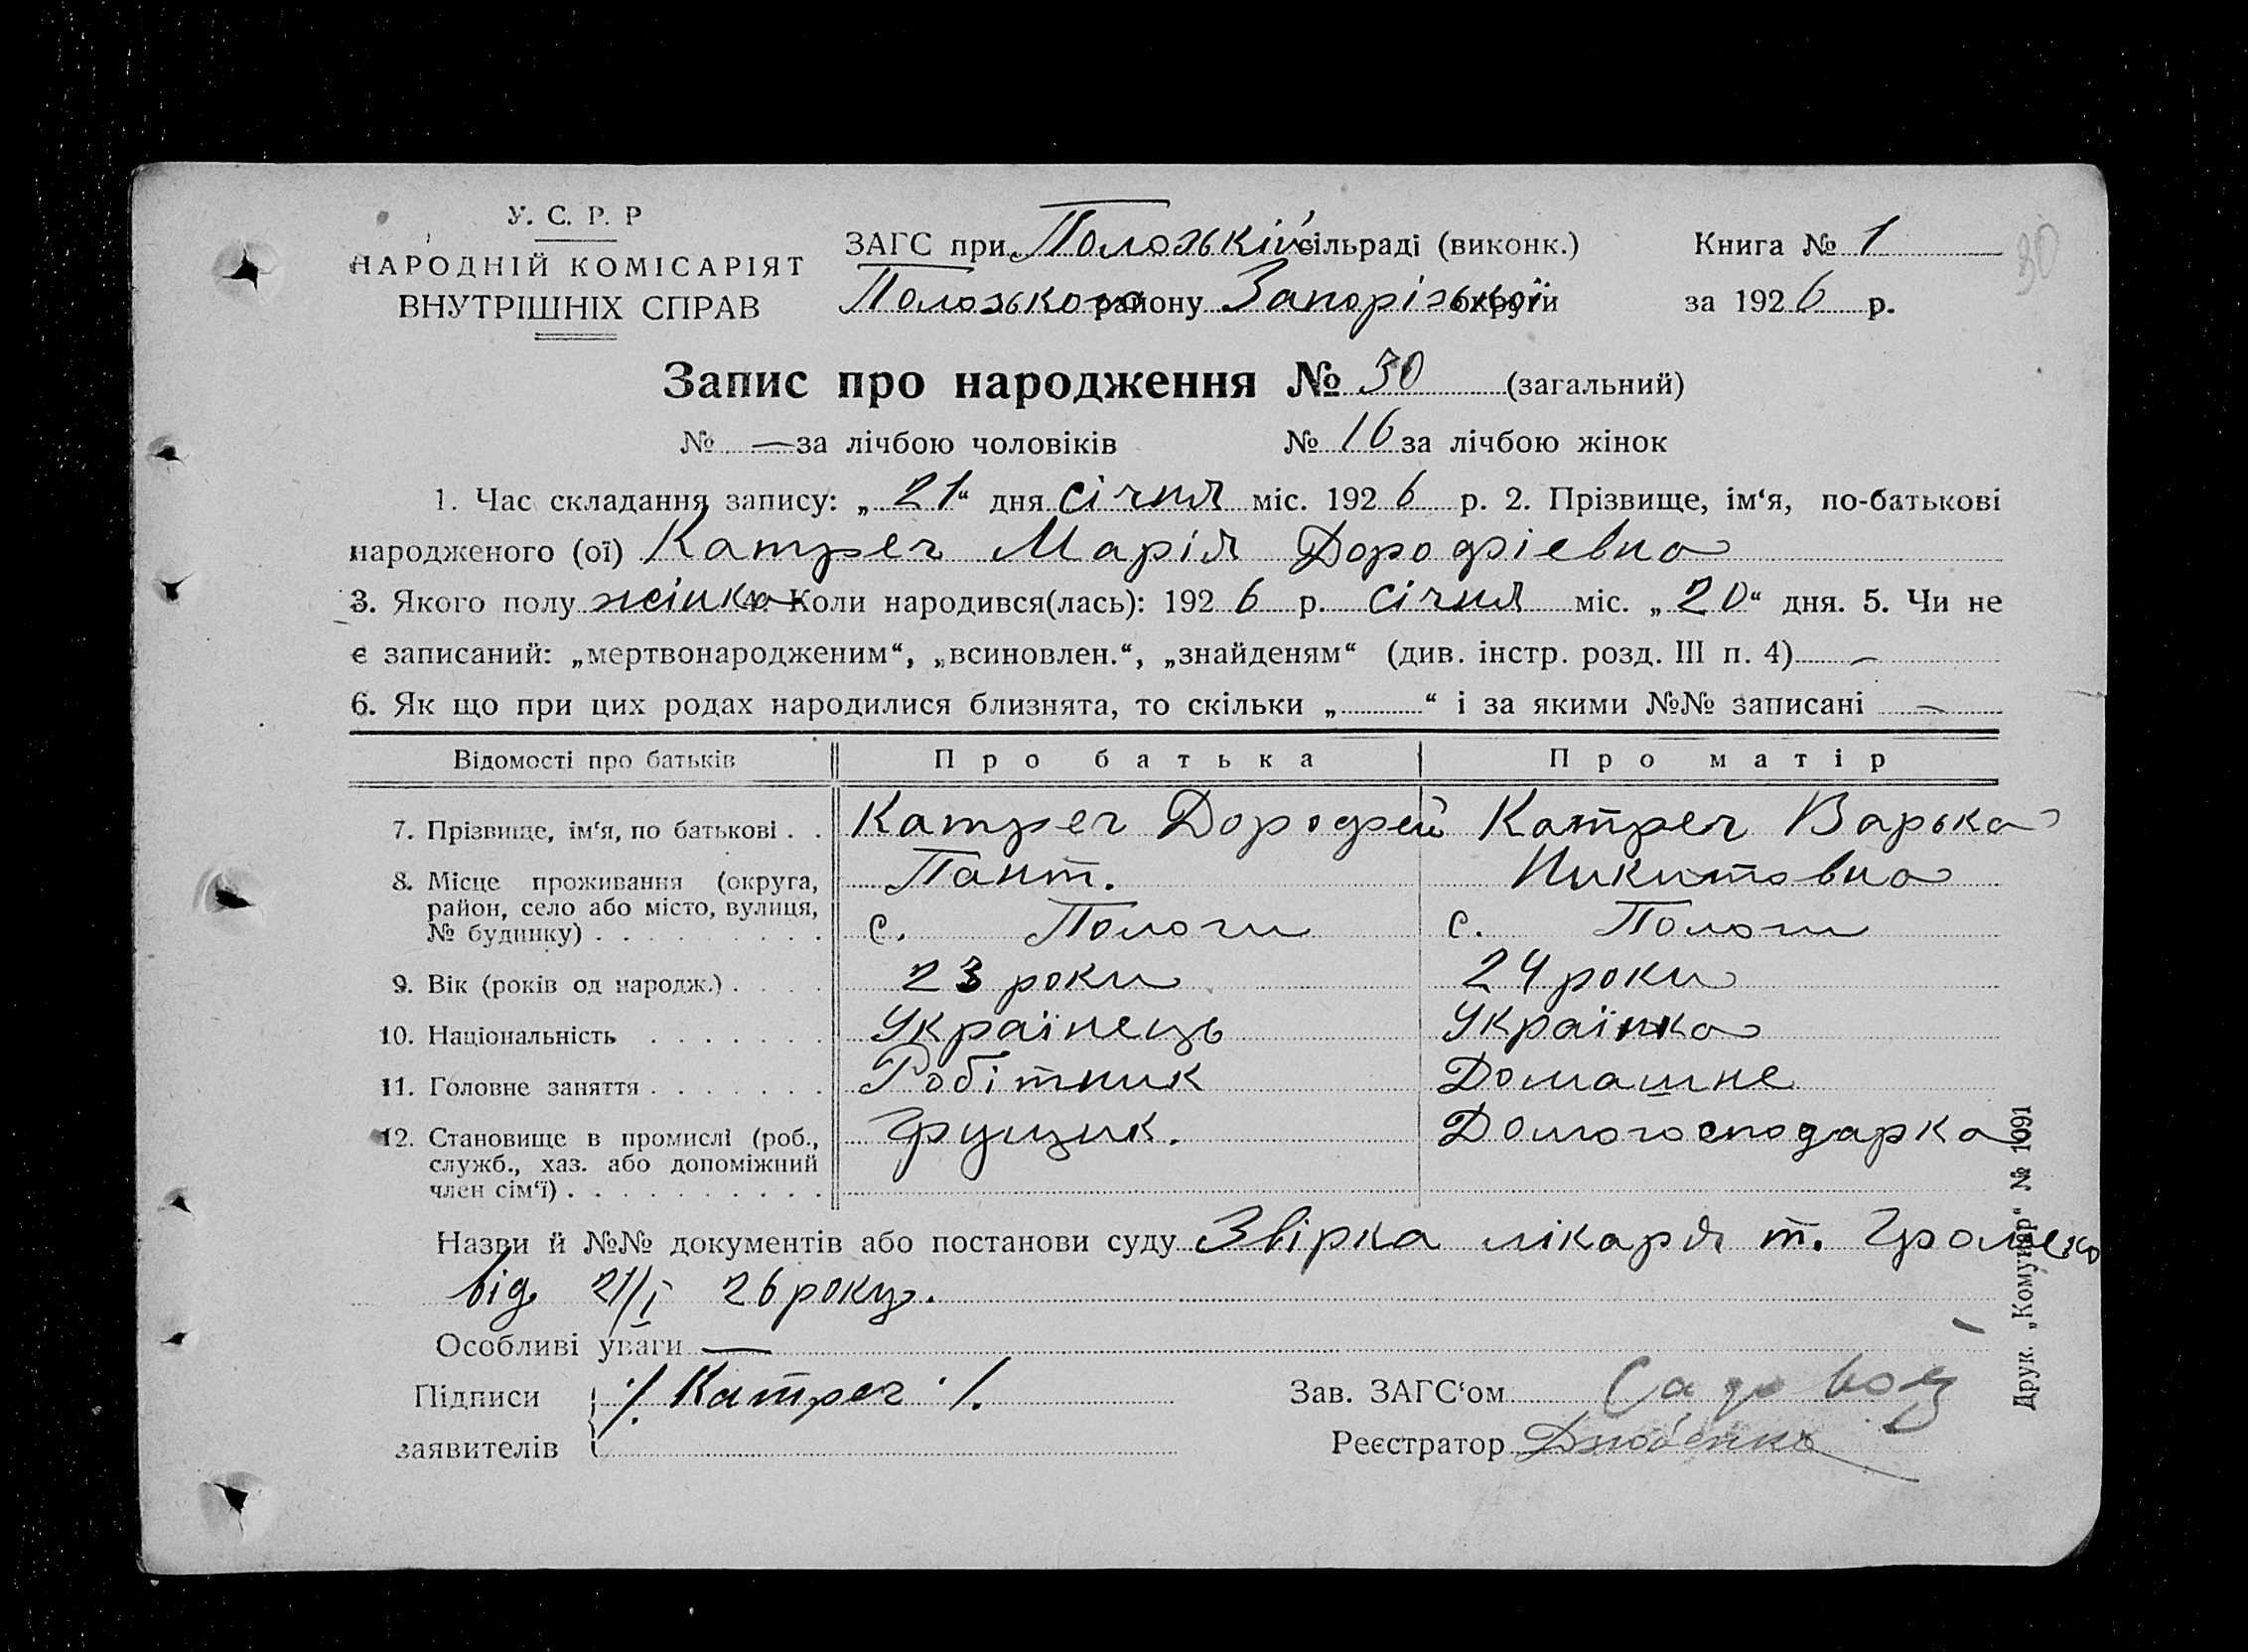 У. С. Р. Р
НАРОДНІЙ КОМІСАРІЯТ
ВНУТРІШНІХ СПРАВ
ЗАГС при Положькій сільраді (виконк.)
Положського району Запорізької округи
Книга № 1
за 1926 р.
30
Запис про народження № 30 (загальний)
№ — за лічбою чоловіків № 16 за лічбою жінок
1. Час складання запису: „21“ дня січня міс. 1926 р. 2. Прізвище, ім‘я, по-батькові
народженого (ої) Катреч Марія Дорофієвна
3. Якого полу жінка Коли народився(лась): 1926 р. січня міс. „20“ дня. 5. Чи не
є записаний: „мертвонародженим“, „всиновлен.“, „знайденям“ (див. інстр. розд. III п. 4) —
6. Як що при цих родах народилися близнята, то скільки „ “ і за якими №№ записані —
Відомості про батьків Про батька Про матір
7. Прізвище, ім‘я, по батькові . . Катреч Дорофей Катреч Варька
Пант. Никитовна
8. Місце проживання (округа,
район, село або місто, вулиця,
№ будинку) . . . . . . . . . с. Пологи с. Пологи
9. Вік (років од народж.) . . . . 23 роки 24 роки
10. Національність . . . . . . . Українець Українка
11. Головне заняття . . . . . . . Робітник Домашне
12. Становище в промислі (роб.,
служб., хаз. або допоміжний
член сім‘ї) . . . . . . . . . . Грущик. Домогосподарка
Назви й №№ документів або постанови суду Звірка лікаря т.
від 21/I 26 року.
Особливі уваги —
Підписи ./. Катреч ./.
заявителів
Зав. ЗАГС‘ом
Реєстратор
Друк. „Комунар“ № 1091